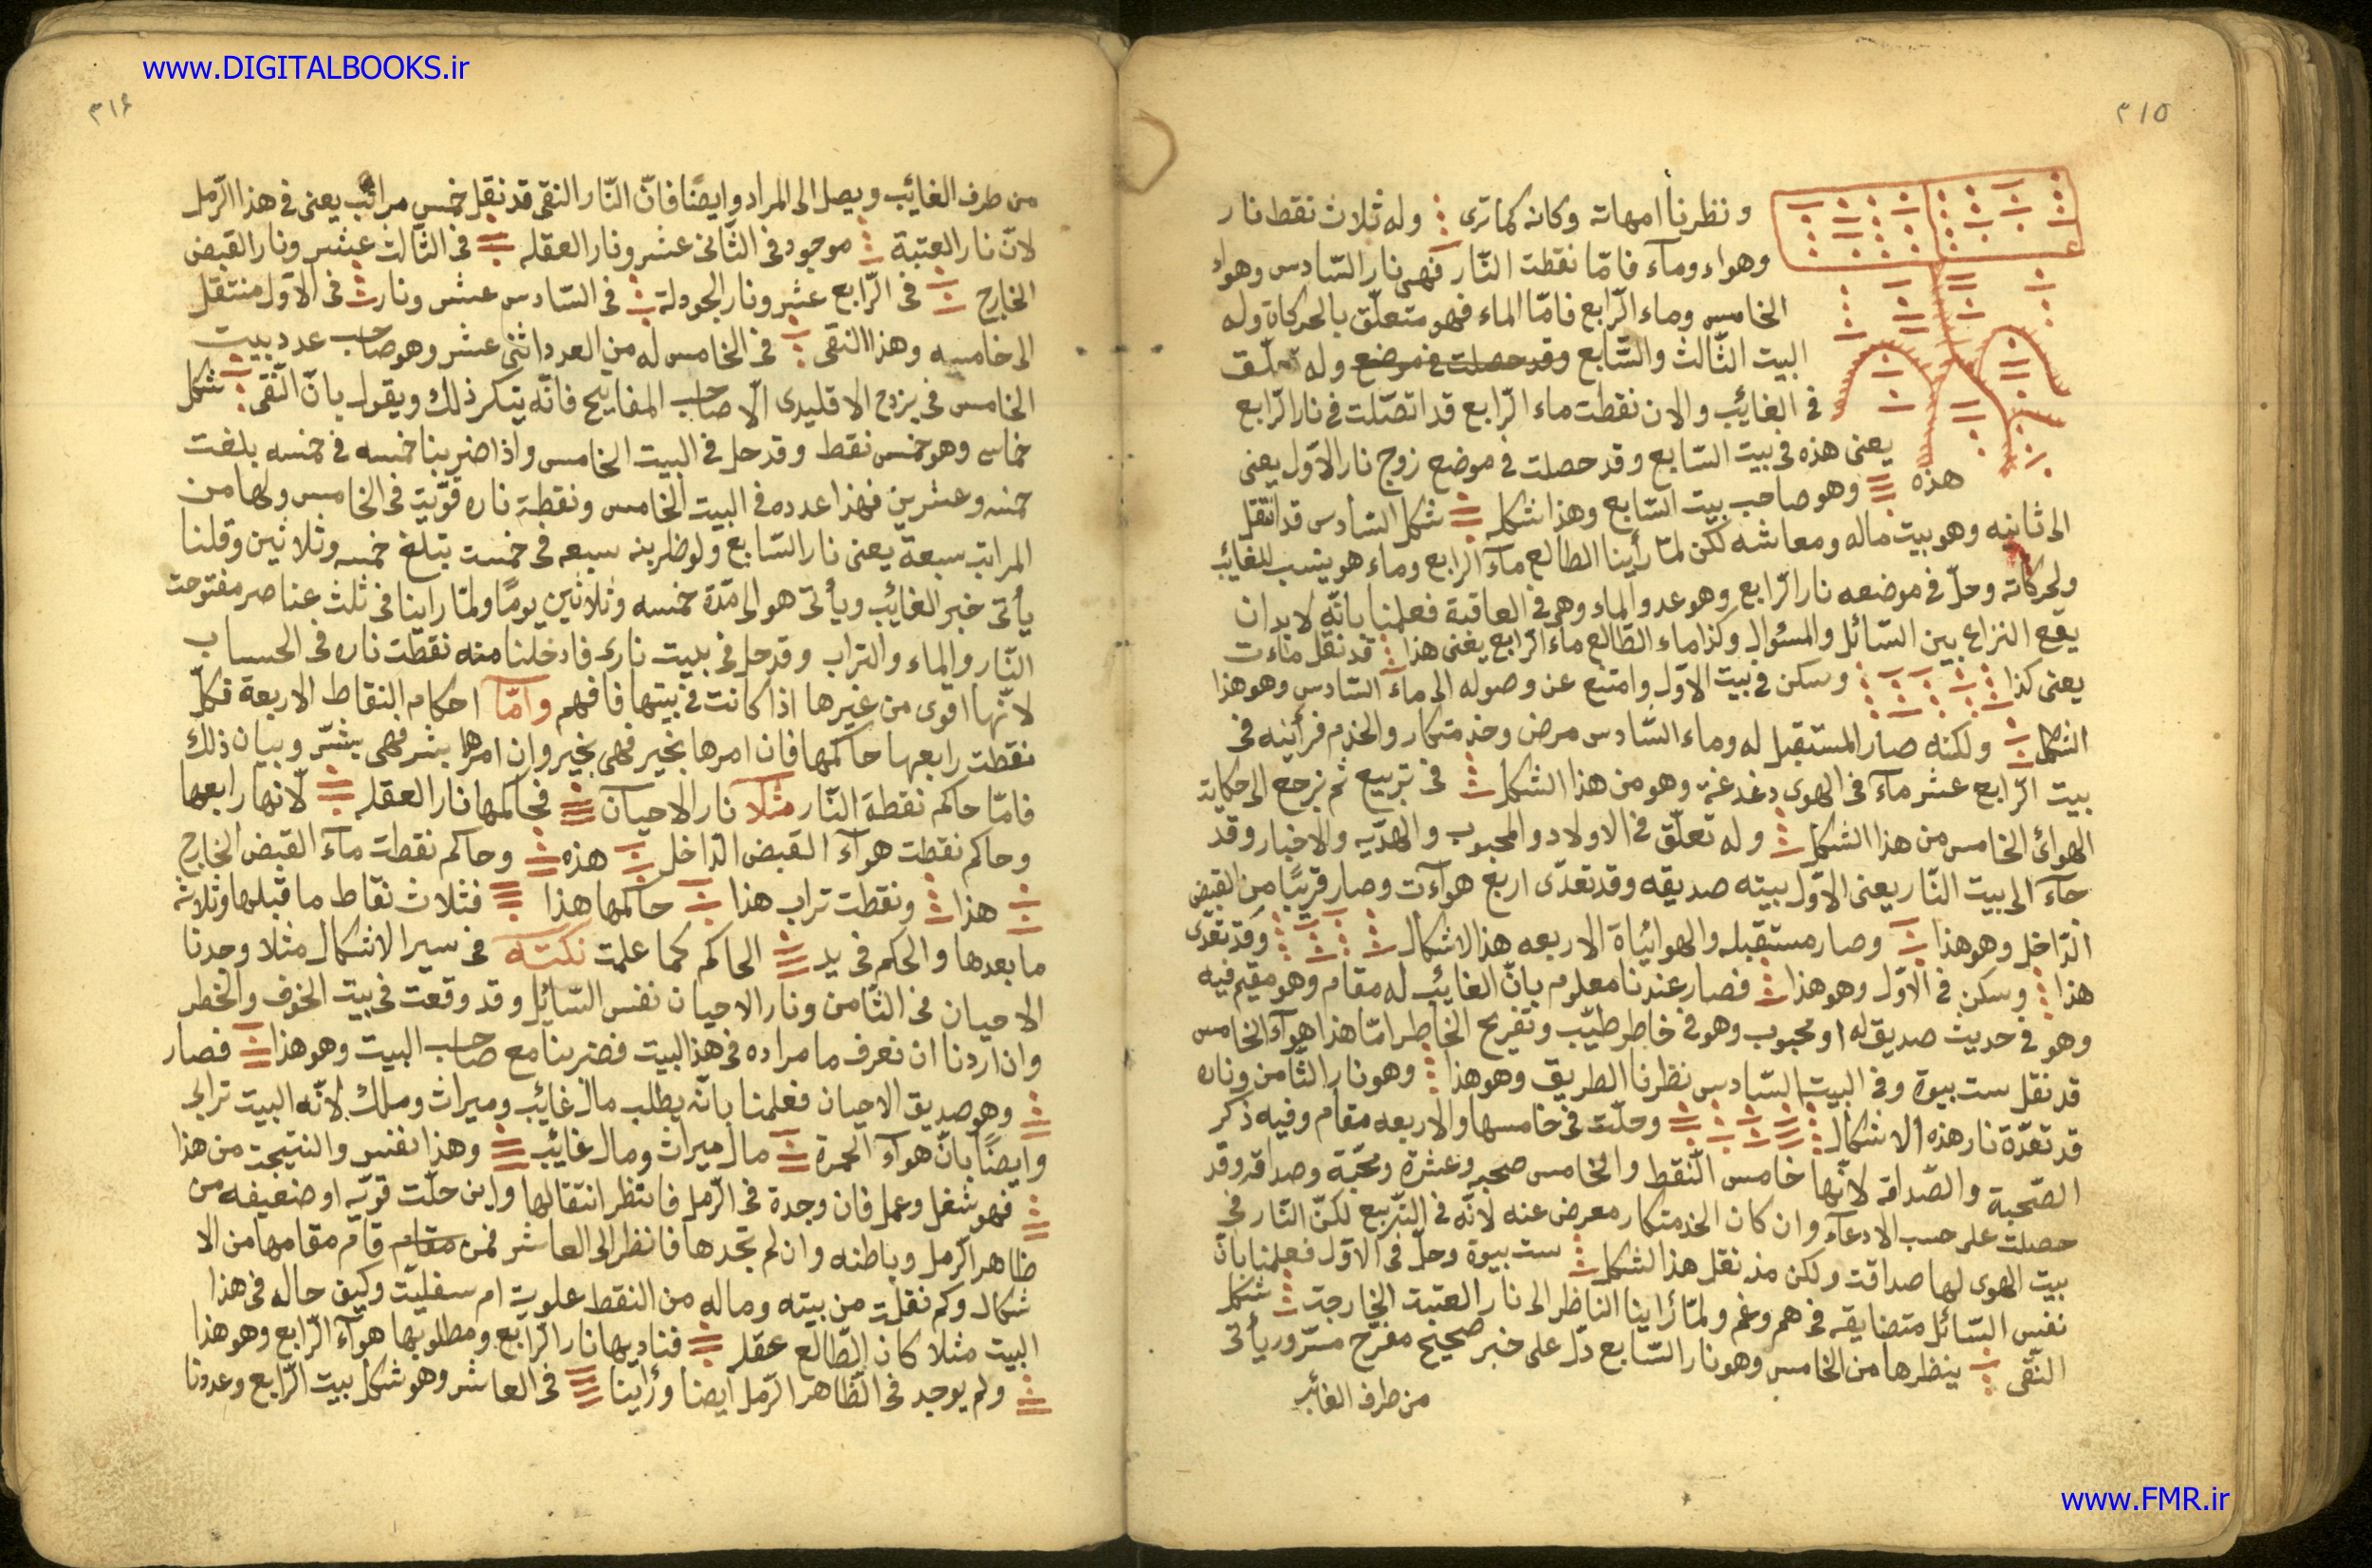 www.DIGITALBOOKS.ir
٣١٥
ونظرنا امهاته وكانه كما ترى وله ثلاث نقط نار
وهواء وماء فامّا نقطت النّار فهى نار السّادس وهواء
الخامس وماء الرّابع فامّا الماء فهو متعلّق بالحركاة وله
البيت الثّالث والسّابع وقد حصلت فى موضع وله تعلّق
فى الغائب والان نقطت ماء الرّابع قد اتصّلت فى نار الرّابع
يعنى هذه فى بيت السّابع وقد حصلت فى موضع زوج نار الاوّل يعنى
هذه وهو صاحب بيت السّابع وهذا شكله شكل السّادس قد انتقل
الى ثانيه وهو بيت ماله ومعاشه لكن لمّا رأينا الطالع ماء الرابع وماء هو ينسب للغائب
ولحركاته وحلّ فى موضعه نار الرّابع وهو عدو الماء وهى فى العاقبة فعلمنا بانّه لا بد ان
يقع النزاع بين السّائل والمسئول وكذا ماء الطّالع ماء الرّابع يعنى هذا قد نقل ماءت
يعنى كذا وسكن فى بيت الاوّل وامتنع عن وصوله الى ماء السّادس وهو هذا
الشكل ولكنه صار المستقبل له وماء السّادس مرض وخذمتكار والخدم فرأيته فى
بيت الرّابع عشر ماء فى الهوى دغدغة وهو من هذا الشكل فى تربيع ثم نرجع الى حكاية
الهوائ الخامس من هذا الشكل وله تعلّق فى الاولاد والمحبوب والهدّيه والاخبار وقد
جاء الى بيت النّار يعنى الاوّل بيته صديقه وقد تعدّى اربع هواءت وصار قريبًا من القبض
الدّاخل وهو هذا وصار مستقبله والهوائياة الاربعه هذا الاشكال وقد تعدى
هذا وسكن فى الاوّل وهو هذا فصار عندنا معلوم بانّ الغائب له مقام وهو مقيم فيه
وهو فى حديث صديق له او محبوب وهو فى خاطر طيّب وتفريح الخاطر امّا هذا هواء الخامس
قد نقل ست بيوة وفى البيت السّادس نظرنا الطريق وهو هذا وهو نار الثّامن وناره
قد تعدّة نار هذه الاشكال وحلّت فى خامسها والاربعه مقام وفيه ذكر
الصّحبة والصّداقه لانّها خامس النّقط والخامس صحبه وعشرة ومحبّة وصداقه وقد
حصلت على حسب الادعاء وان كان الخدمتكار معرض عنه لانّه فى التّربيع لكنّ النّار فى
بيت الهوى لها صداقت ولكن مذ نقل هذا الشكل ست بيوة وحلّ فى الاوّل فعلمنا بانّ
نفس السّائل متضايقه فى هم وغم ولمّا رأينا الناظر الى نار العتبت الخارجت شكل
النّقى ينظرها من الخامس وهو نار السّابع دلّ على خبر صحيح مفرح مسّر ور يأتى
من طرف الغائب
٣١٤
من طرف الغائب ويصل الى المراد وايضًا فانّ النّار النقى قد نقل خمس مراتب يعنى فى هذا الرّمل
لانّ نار العتبة موجود فى الثّانى عشر ونار العقله فى الثّالث عشر ونار القبض
الخارج فى الرّابع عشر ونار الجودلة فى السّادس عشر ونار فى الاوّل منتقل
الى خامسه وهذا النقى فى الخامس له من العدد اثنى عشر وهو صاحب عدد بيت
الخامس فى يزدج الاقليدى الّا صاحب المفاتيح فانّه يتكر ذلك ويقول بانّ النّقى شكل
خماسى وهو خمس نقط وقد حل فى البيت الخامس واذا ضربنا خمسه فى خمسه بلغت
خمسه وعشرين فهذا عدده فى البيت الخامس ونقطة ناره قوّيت فى الخامس ولها من
المراتب سبعة يعنى نار السّابع ولو ظربنه سبعه فى خمست تبلغ خمسه وثلاثين وقلنا
يأتى خبر الغائب ويأتى هو الى مدّة خمسه وثلاثين يومًا ولمّا راينا فى ثلث عناصر مفتوحت
النّار والماء والتراب وقد حل فى بليت نارى فادخلنا منه نقطت ناره فى الحساب
لانّها اقوى من غيرها اذا كانت فى بيتها فافهم وامّا احكام النقاط الاربعة فكلّ
نقطت رابعها حاكمها فان امرها بخير فهى بخير وان امرها بشر فهى بشّر وبيان ذلك
فامّا حاكم نقطة النّار مثلا نار الاحيان فحاكمها نار العقله لانها رابعها
وحاكم نقطت هواء القبض الدّاخل هذه وحاكم نقطت ماء القبض الخارج
هذا ونقطت تراب هذا حاكمها هذا فثلاث نقاط ما قبلها وثلاثه
ما بعدها والحكم فى يد الحاكم كما علمت نكته فى سير الاشكال مثلا وجدنا
الاحيان فى الثّامن ونار الاحيان نفس السّائل وقد وقعت فى بيت الخوف والخطر
وان اردنا ان نعرف ما مراده فى هذا البيت فضربنا مع صاحب البيت وهو هذا فصار
وهو صديق الاحيان فعلمنا بانّه يطلب مال غائب وميراث وملك لانّه البيت ترابى
وايضًا بانّ هواء الحمرة مال ميراث ومال غائب وهذا نفس والنتيجت من هذا
فهو شغل وعمل فان وجدة فى الرّمل فانتظر انتقالها واين حلّت قويّه او ضعيفه من
ظاهر الرّمل وباطنه وان لم تجدها فانظر الى العاشر فمن مقام قام مقامها من الا
شكال وكم نقلت من بيته وماله من النقط علويت ام سفليّت وكيف حاله فى هذا
البيت مثلا كان الطّالع عقله فناديها نار الرّابع ومطلوبها هواء الرّابع وهو هذا
ولم يوجد فى الظّاهر الرّمل ايضا ورأينا فى العاشر وهو شكل بيت الرّابع وعددنا
www.FMR.ir